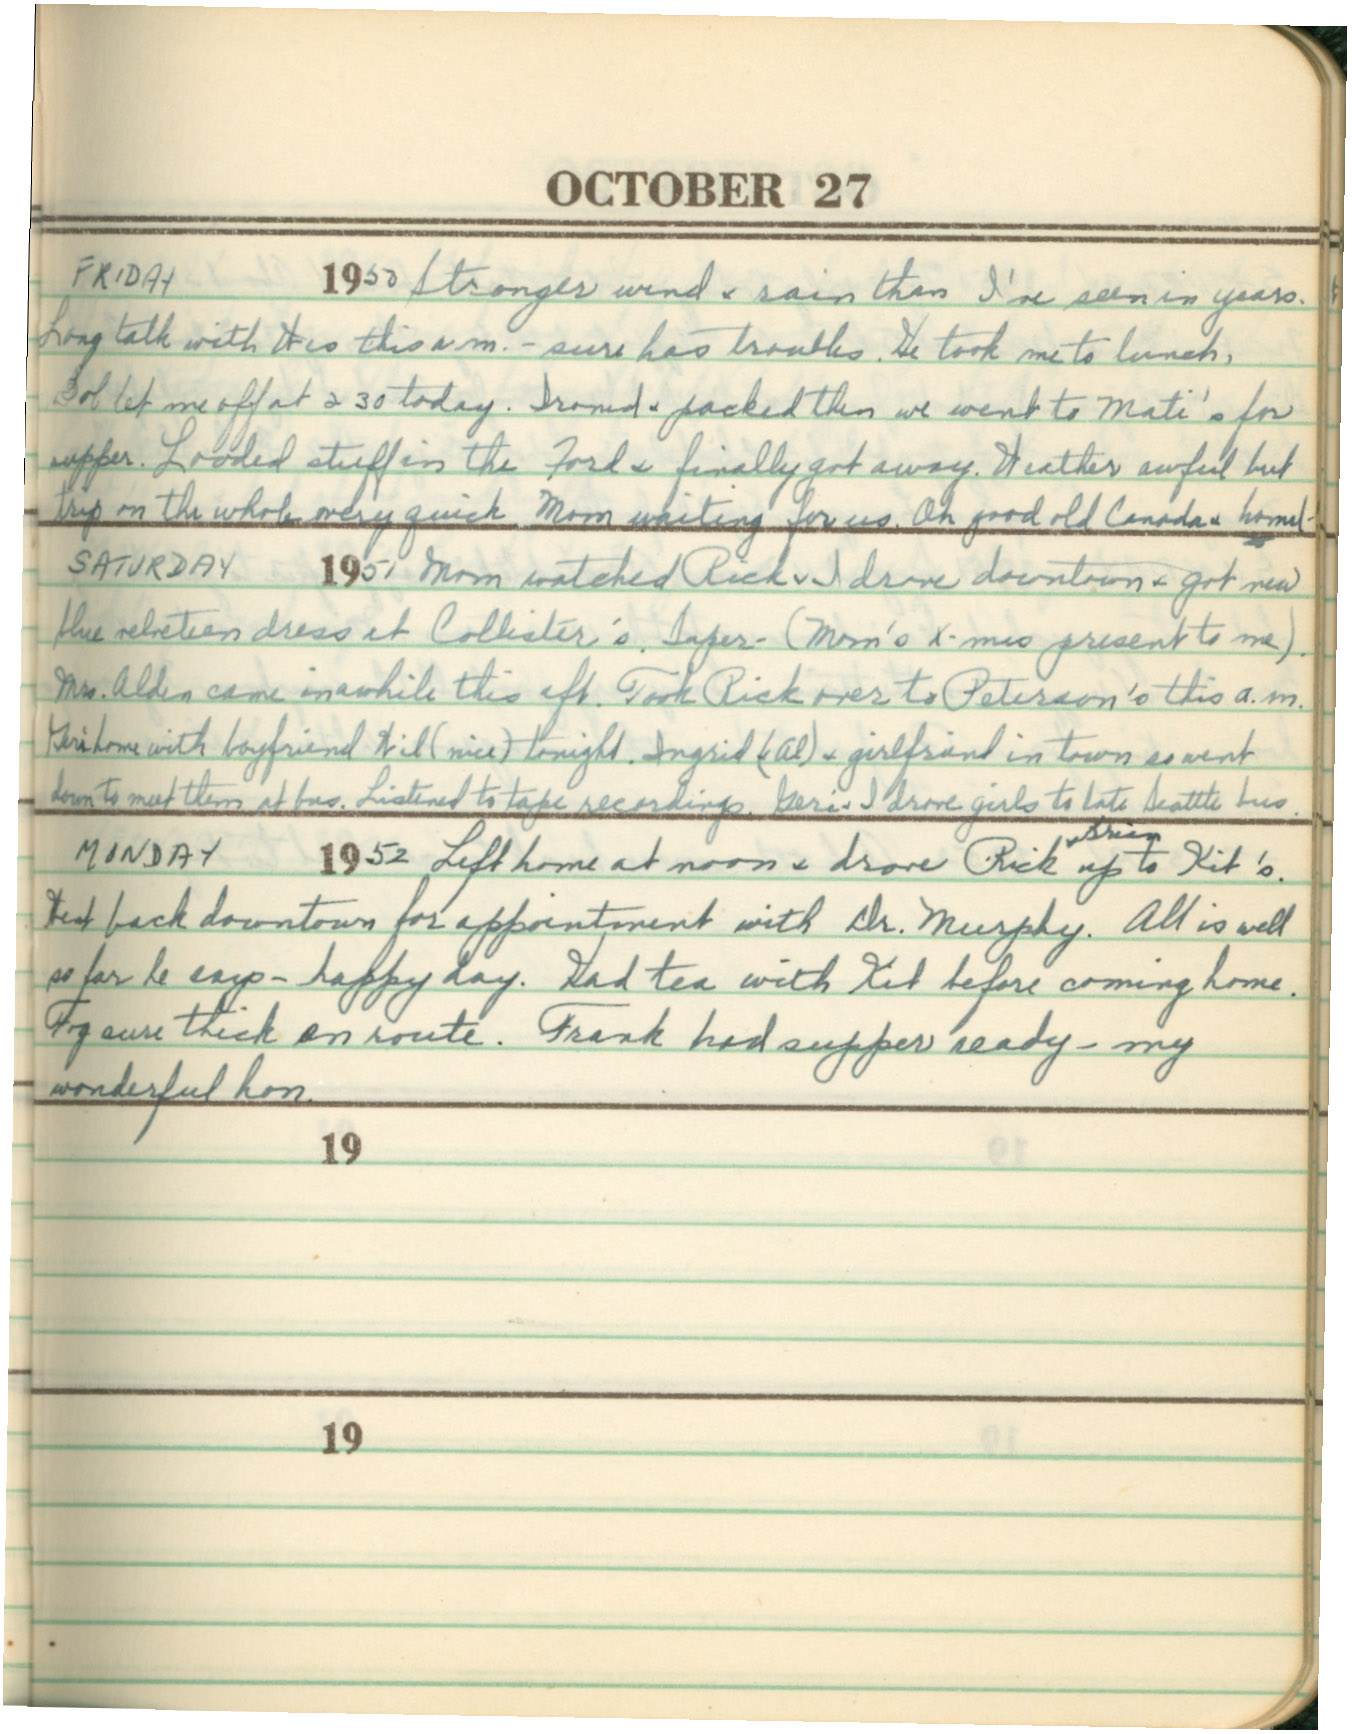 OCTOBER 27
FRIDAY 1950 Stronger wind & rain than I've seen in years.
Long talk with this a.m. - sure has troubles. He took me to lunch.
Bob let me off at 2 30 today. Ironed & packed then we went to Mati's for
supper. Loaded stuff in the Ford & finally got away. Weather awful but
trip on the whole very quick. Mom waiting for us. Oh good old Canada & home!-
SATURDAY 1951 Mom watched Rick & I drove downtown & got new
blue velveteen dress at Collister's. Super- (Mom's X-mas present to me).
Mrs. Alden came in awhile this aft. Took Rick over to Peterson's this a.m.
Geri home with boyfriend Wil (nice) tonight. Ingrid (& Al) & girlfriend in town so went
down to meet them at bus. Listened to tape recordings. Geri & I drove girls to late Seattle bus.
MONDAY 1952 Left home at noon & drove Rick & Brian up to Kit's.
Went back downtown for appointment with Dr. Murphy. All is well
so far he says - happy day. Had tea with Kit before coming home.
Fog sure thick en route. Frank had supper ready - my
wonderful hon.
19
19